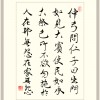 仲弓問仁子曰出門
如見大賓使民如承
大祭己所不欲勿施於
人在邦無怨在家無怨